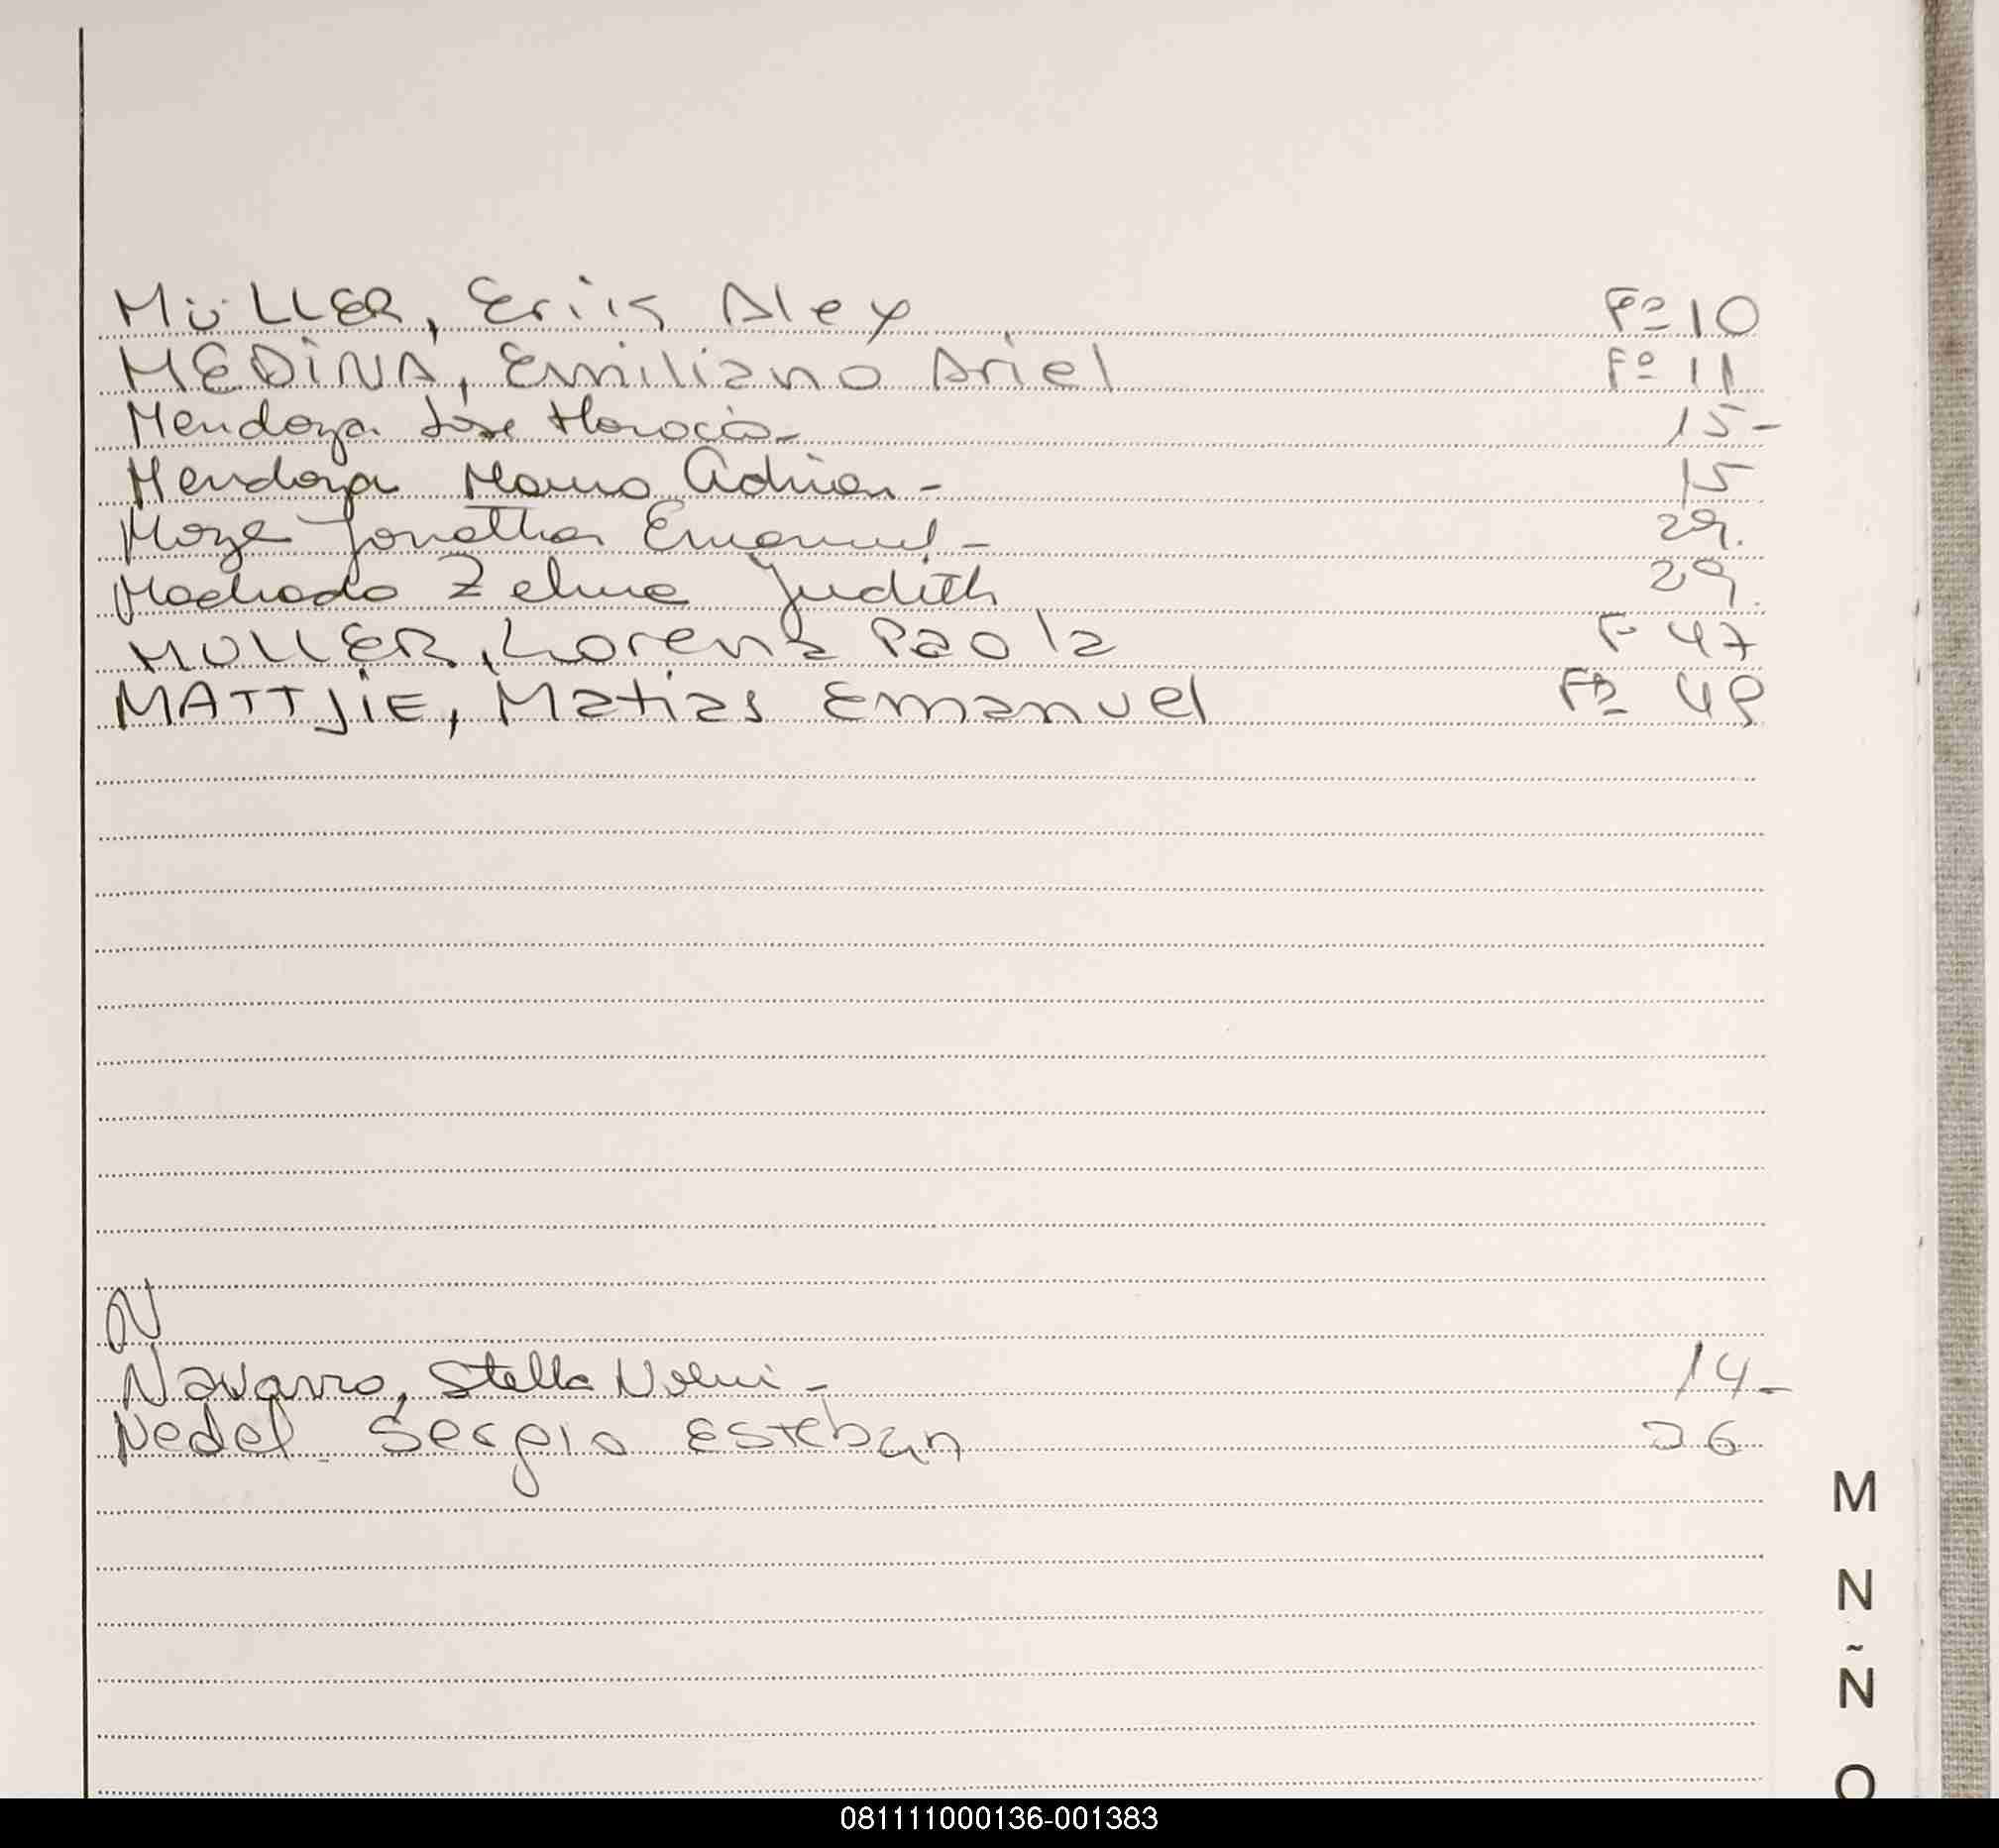 MüLLER, Erik Alex Fº 10
MEDINA, Emiliano Ariel Fº 11
Mendoza José Horacio - 15 -
Mendoza Mario Adrian - 15
Moze Jonathan Emanuel - 29.
Machado Zelma Judith 29.
MULLER, Lorena Paola Fº 47
MATTJiE, Matias Emanuel Fº 49
N
Navarro, Stella Noemi - 14 -
Nedel Sergio Esteban 26
M
N
Ñ
O
081111000136-001383